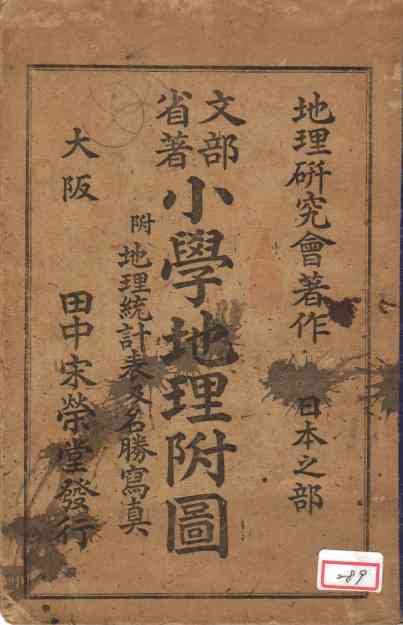 地理研究會著作 日本之部
文部省著
小學地理附圖
附 地理統計表及名勝寫真
大阪 田中宋榮堂發行
289